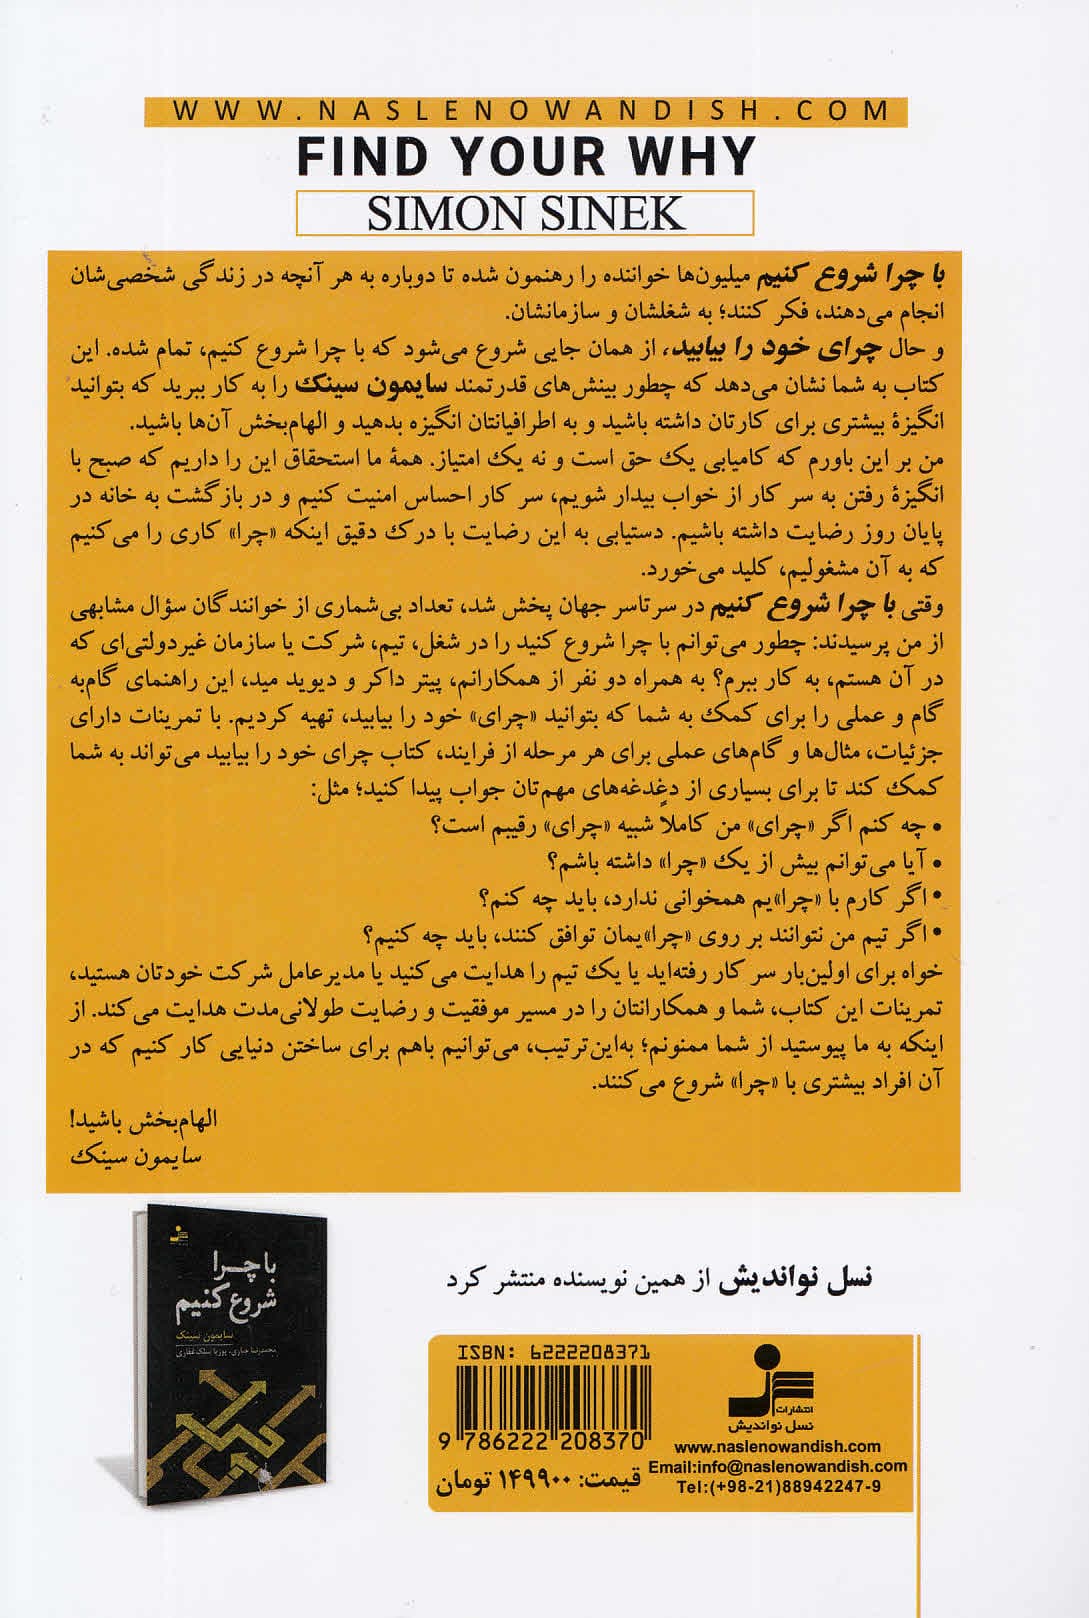 WWW.NASLENOWANDISH.COM
FIND YOUR WHY
SIMON SINEK
با چرا شروع کنیم میلیون‌ها خواننده را رهنمون شده تا دوباره به هر آنچه در زندگی شخصی‌شان
انجام می‌دهند، فکر کنند؛ به شغلشان و سازمانشان.
و حال چرای خود را بیابید، از همان جایی شروع می‌شود که با چرا شروع کنیم، تمام شده. این
کتاب به شما نشان می‌دهد که چطور بینش‌های قدرتمند سایمون سینک را به کار ببرید که بتوانید
انگیزهٔ بیشتری برای کارتان داشته باشید و به اطرافیانتان انگیزه بدهید و الهام‌بخش آن‌ها باشید.
من بر این باورم که کامیابی یک حق است و نه یک امتیاز. همهٔ ما استحقاق این را داریم که صبح با
انگیزهٔ رفتن به سر کار از خواب بیدار شویم، سر کار احساس امنیت کنیم و در بازگشت به خانه در
پایان روز رضایت داشته باشیم. دستیابی به این رضایت با درک دقیق اینکه «چرا» کاری را می‌کنیم
که به آن مشغولیم، کلید می‌خورد.
وقتی با چرا شروع کنیم در سرتاسر جهان پخش شد، تعداد بی‌شماری از خوانندگان سؤال مشابهی
از من پرسیدند: چطور می‌توانم با چرا شروع کنید را در شغل، تیم، شرکت یا سازمان غیردولتی‌ای که
در آن هستم، به کار ببرم؟ به همراه دو نفر از همکارانم، پیتر داکر و دیوید مید، این راهنمای گام‌به
گام و عملی را برای کمک به شما که بتوانید «چرای» خود را بیابید، تهیه کردیم. با تمرینات دارای
جزئیات، مثال‌ها و گام‌های عملی برای هر مرحله از فرایند، کتاب چرای خود را بیابید می‌تواند به شما
کمک کند تا برای بسیاری از دغدغه‌های مهم‌تان جواب پیدا کنید؛ مثل:
• چه کنم اگر «چرای» من کاملاً شبیه «چرای» رقیبم است؟
• آیا می‌توانم بیش از یک «چرا» داشته باشم؟
• اگر کارم با «چرا»یم همخوانی ندارد، باید چه کنم؟
• اگر تیم من نتوانند بر روی «چرا»یمان توافق کنند، باید چه کنیم؟
خواه برای اولین‌بار سر کار رفته‌اید یا یک تیم را هدایت می‌کنید یا مدیرعامل شرکت خودتان هستید،
تمرینات این کتاب، شما و همکارانتان را در مسیر موفقیت و رضایت طولانی‌مدت هدایت می‌کند. از
اینکه به ما پیوستید از شما ممنونم؛ به‌این‌ترتیب، می‌توانیم باهم برای ساختن دنیایی کار کنیم که در
آن افراد بیشتری با «چرا» شروع می‌کنند.
الهام‌بخش باشید!
سایمون سینک
با چرا
شروع کنیم
سایمون سینک
نسل نواندیش از همین نویسنده منتشر کرد
ISBN: 6222208371
9 786222 208370
قیمت: ۱۴۹۹۰۰ تومان
انتشارات
نسل نواندیش
www.naslenowandish.com
Email:info@naslenowandish.com
Tel:(+98-21)88942247-9